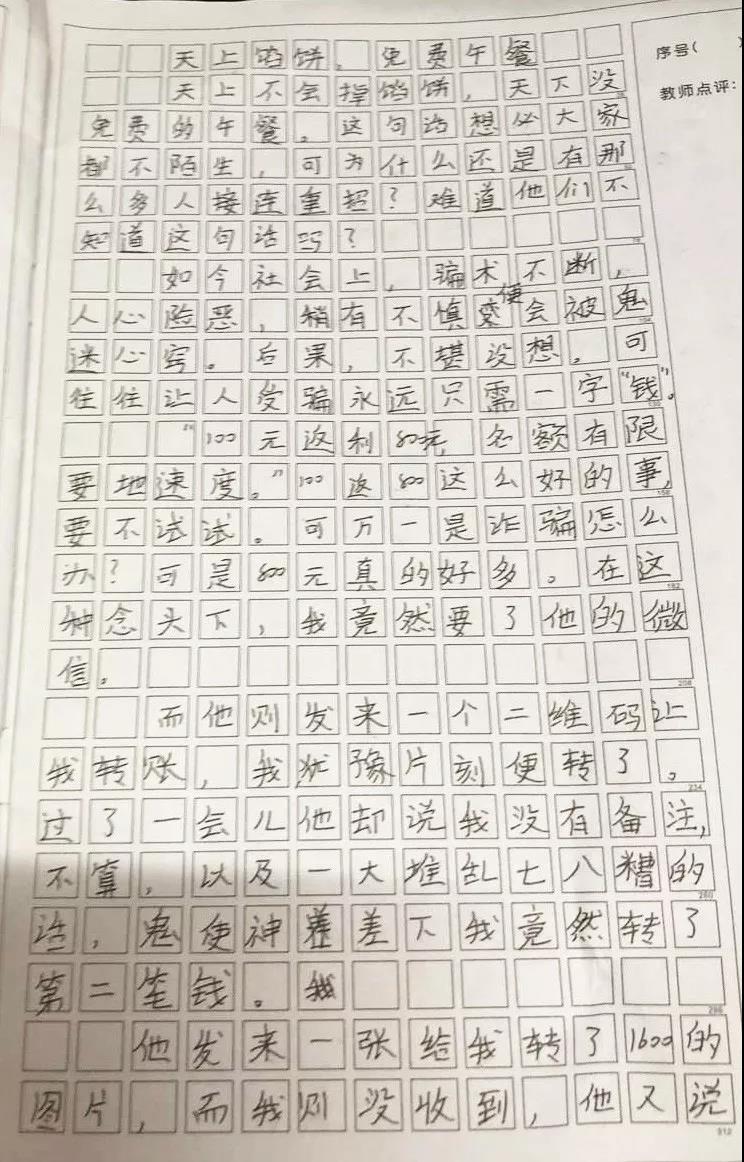 天上馅饼，免费午餐
序号( )
天上不会掉馅饼，天下没
教师点评：
免费的午餐。这句话想必大家
都不陌生，可为什么还是有那
么多人接连重蹈？难道他们不
知道这句话吗？
如今社会上，骗术不断，
人心险恶，稍有不慎便会被鬼
迷心窍。后果，不堪设想。可
往往让人受骗永远只需一字“钱”。
“100元返利800元，名额有限
要地速度。”100返800这么好的事，
要不试试。可万一是诈骗怎么
办？可是800元真的好多。在这
种念头下，我竟然要了他的微
信。
而他则发来一个二维码让
我转账，我犹豫片刻便转了。
过了一会儿他却说我没有备注，
不算，以及一大堆乱七八糟的
话，鬼使神差差下我竟然转了
第二笔钱。
他发来一张给我转了1600的
图片，而我则没收到，他又说